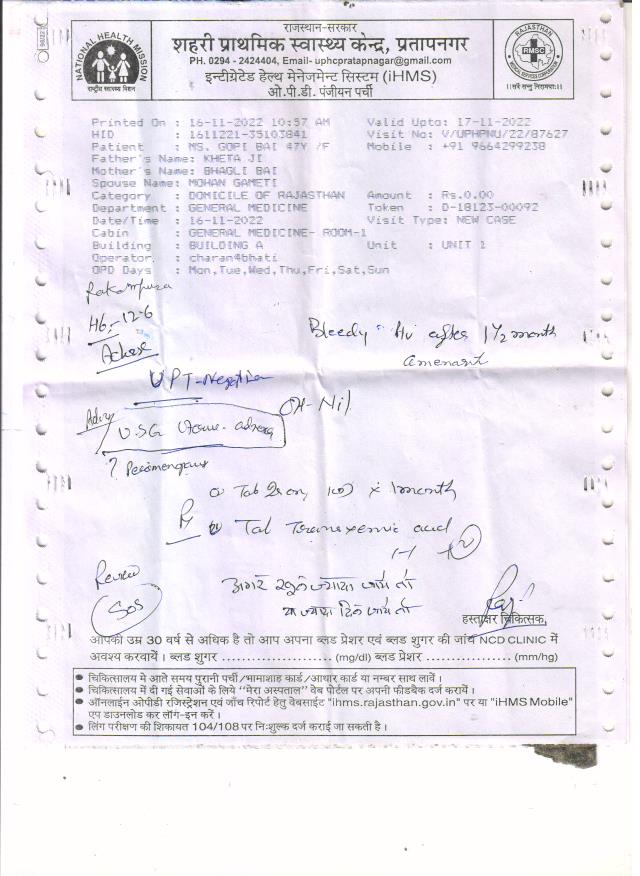 96222
NATIONAL HEALTH MISSION
राष्ट्रीय स्वास्थ्य मिशन
राजस्थान-सरकार
शहरी प्राथमिक स्वास्थ्य केन्द्र, प्रतापनगर
PH. 0294 - 2424404, Email- uphcpratapnagar@gmail.com
इन्टीग्रेटेड हेल्थ मेनेजमेन्ट सिस्टम (iHMS)
ओ.पी.डी. पंजीयन पर्ची
RAJASTHAN
RMSC
MEDICAL SERVICES CORPORATION
।।सर्वे सन्तु निरामयाः।।
Printed On : 16-11-2022 10:57 AM Valid Upto: 17-11-2022
HID : 1611221-35103841 Visit No: V/UPHPNU/22/87627
Patient : MS. GOPI BAI 47Y /F Mobile : +91 9664299238
Father's Name: KHETA JI
Mother's Name: BHAGLI BAI
Spouse Name: MOHAN GAMETI
Category : DOMICILE OF RAJASTHAN Amount : Rs.0.00
Department : GENERAL MEDICINE Token : D-18123-00092
Date/Time : 16-11-2022 Visit Type: NEW CASE
Cabin : GENERAL MEDICINE- ROOM-1
Building : BUILDING A Unit : UNIT 1
Operator. : charan4bhati
OPD Days : Mon,Tue,Wed,Thu,Fri,Sat,Sun
Hb - 12.6
after 1 1/2 month
UPT - Negative
OH - Nil
USG
Tab x 1 month
Rx Tab Tranexemic acid
Review
SOS
अगर खून ज्यादा जाये तो
या ज्यादा दिन जाये तो
हस्ताक्षर चिकित्सक,
आपकी उम्र 30 वर्ष से अधिक है तो आप अपना ब्लड प्रेशर एवं ब्लड शुगर की जांच NCD CLINIC में
अवश्य करवायें। ब्लड शुगर ..................... (mg/dl) ब्लड प्रेशर ..................... (mm/hg)
चिकित्सालय मे आते समय पुरानी पर्ची/भामाशाह कार्ड/आधार कार्ड या नम्बर साथ लावें।
चिकित्सालय में दी गई सेवाओं के लिये "मेरा अस्पताल" वेब पोर्टल पर अपनी फीडबैक दर्ज करायें।
ऑनलाईन ओपीडी रजिस्ट्रेशन एवं जाँच रिपोर्ट हेतु वेबसाईट "ihms.rajasthan.gov.in" पर या "iHMS Mobile"
एप डाउनलोड कर लॉग-इन करें।
लिंग परीक्षण की शिकायत 104/108 पर निःशुल्क दर्ज कराई जा सकती है।